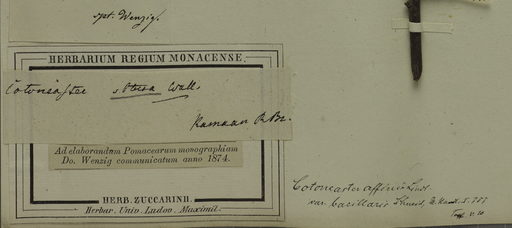 det. Wenzig.
HERBARIUM REGIUM MONACENSE.
Cotoneaster obtusa Wall.
Kamaon R. Bl.
Ad elaborandam Pomacearum monographiam
Do. Wenzig communicatum anno 1874.
HERB. ZUCCARINII.
Herbar. Univ. Ludov. Maximil.
Cotoneaster affinis Lindl.
var. bacillaris Schneid.